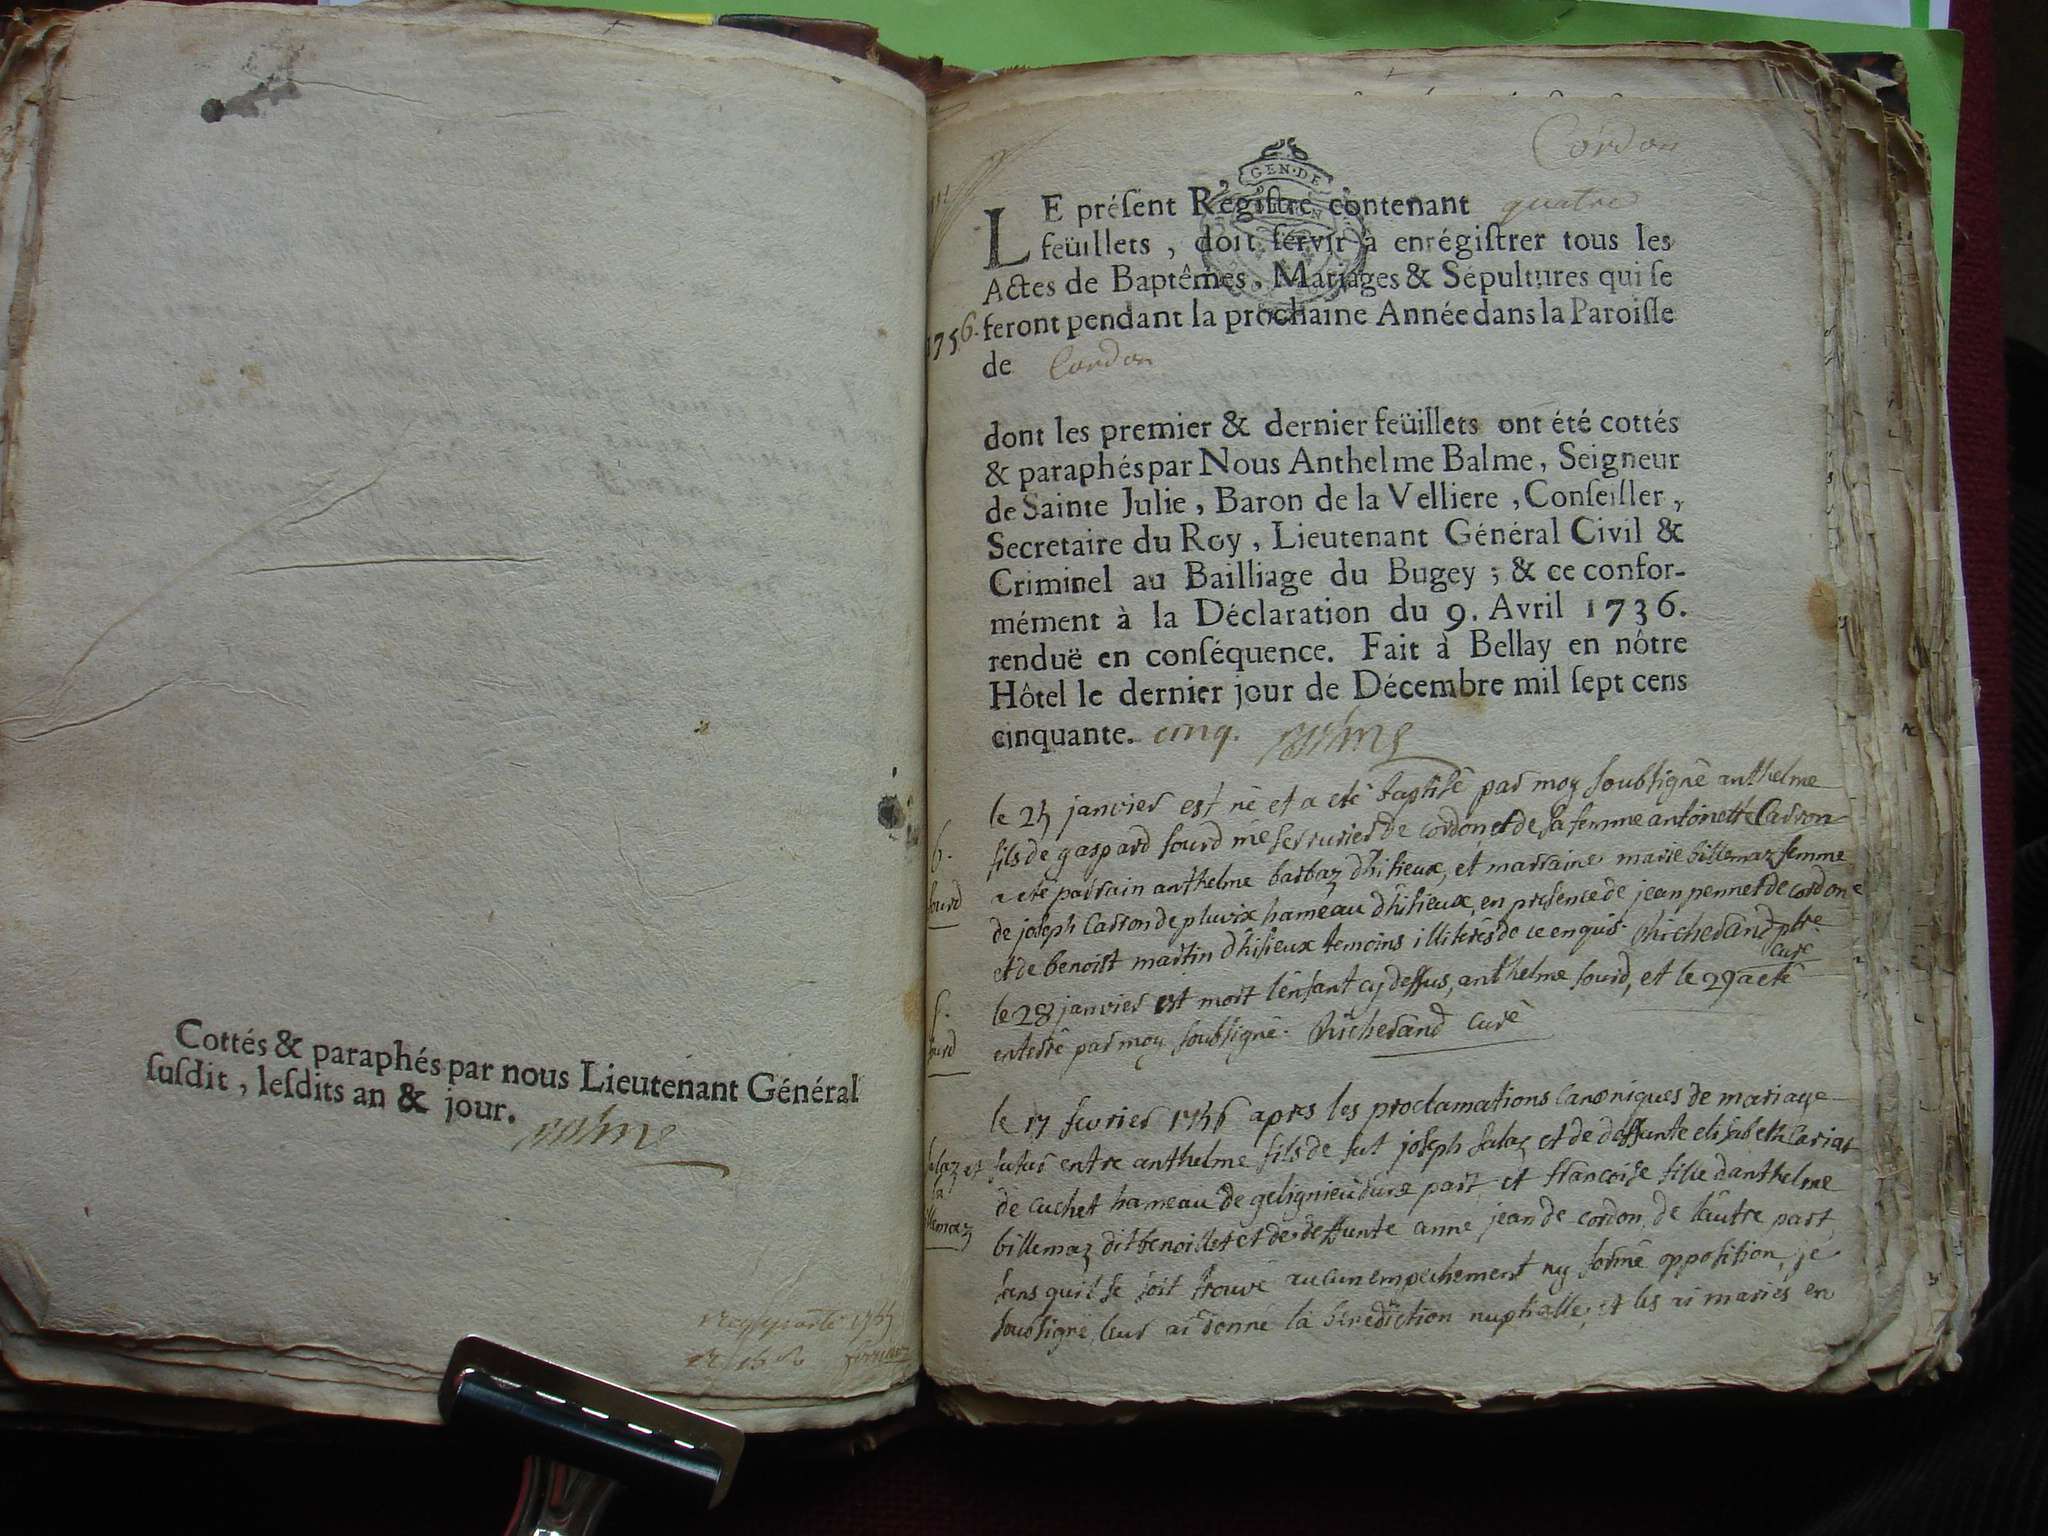 Cottés & paraphés par nous Lieutenant Général
ſuſdit, leſdits an & jour.
Cordon
GEN·DE
LE préſent Régiſtre contenant quatre
feüillets, doit ſervir à enrégiſtrer tous les
Actes de Baptêmes, Mariages & Sépultures qui ſe
1756. feront pendant la prochaine Année dans la Paroiſſe
de Cordon
dont les premier & dernier feüillets ont été cottés
& paraphés par Nous Anthelme Balme, Seigneur
de Sainte Julie, Baron de la Velliere, Conſeiller,
Secretaire du Roy, Lieutenant Général Civil &
Criminel au Bailliage du Bugey; & ce confor-
mément à la Déclaration du 9. Avril 1736.
renduë en conſéquence. Fait à Bellay en nôtre
Hôtel le dernier jour de Décembre mil ſept cens
cinquante. cinq. Balme
le 25 janvier est né et a eté baptisé par moy soubsigné anthelme
b. fils de gaspard sourd me serrurier de cordon, et de sa femme antoinette Carron
sourd a eté parrain anthelme barbaz d'hisieux, et marraine marie billemaz femme
de joseph Carron de pluvix hameau d'hisieux, en presence de jean pennet de cordon
et de benoist martin d'hisieux temoins illiterés de ce enquis. Richerand ptre
curé
s. le 28 janvier est mort l'enfant cy dessus, anthelme sourd, et le 29 a eté
sourd enterré par moy soubsigné. Richerand curé
le 17 fevrier 1756 apres les proclamations canoniques de mariage
salaz et futur entre anthelme fils de fut joseph salaz et de deffunte elisabeth
la de cuchet hameau de gelignieu d'une part et francoise fille d'anthelme
billemaz billemaz dit benoillet et de deffunte anne jean de cordon, de l'autre part,
sans qu'il se soit trouvé aucun empechement ny formé opposition, je
soubsigné, leur ai donné la benediction nuptialle, et les ai mariés en